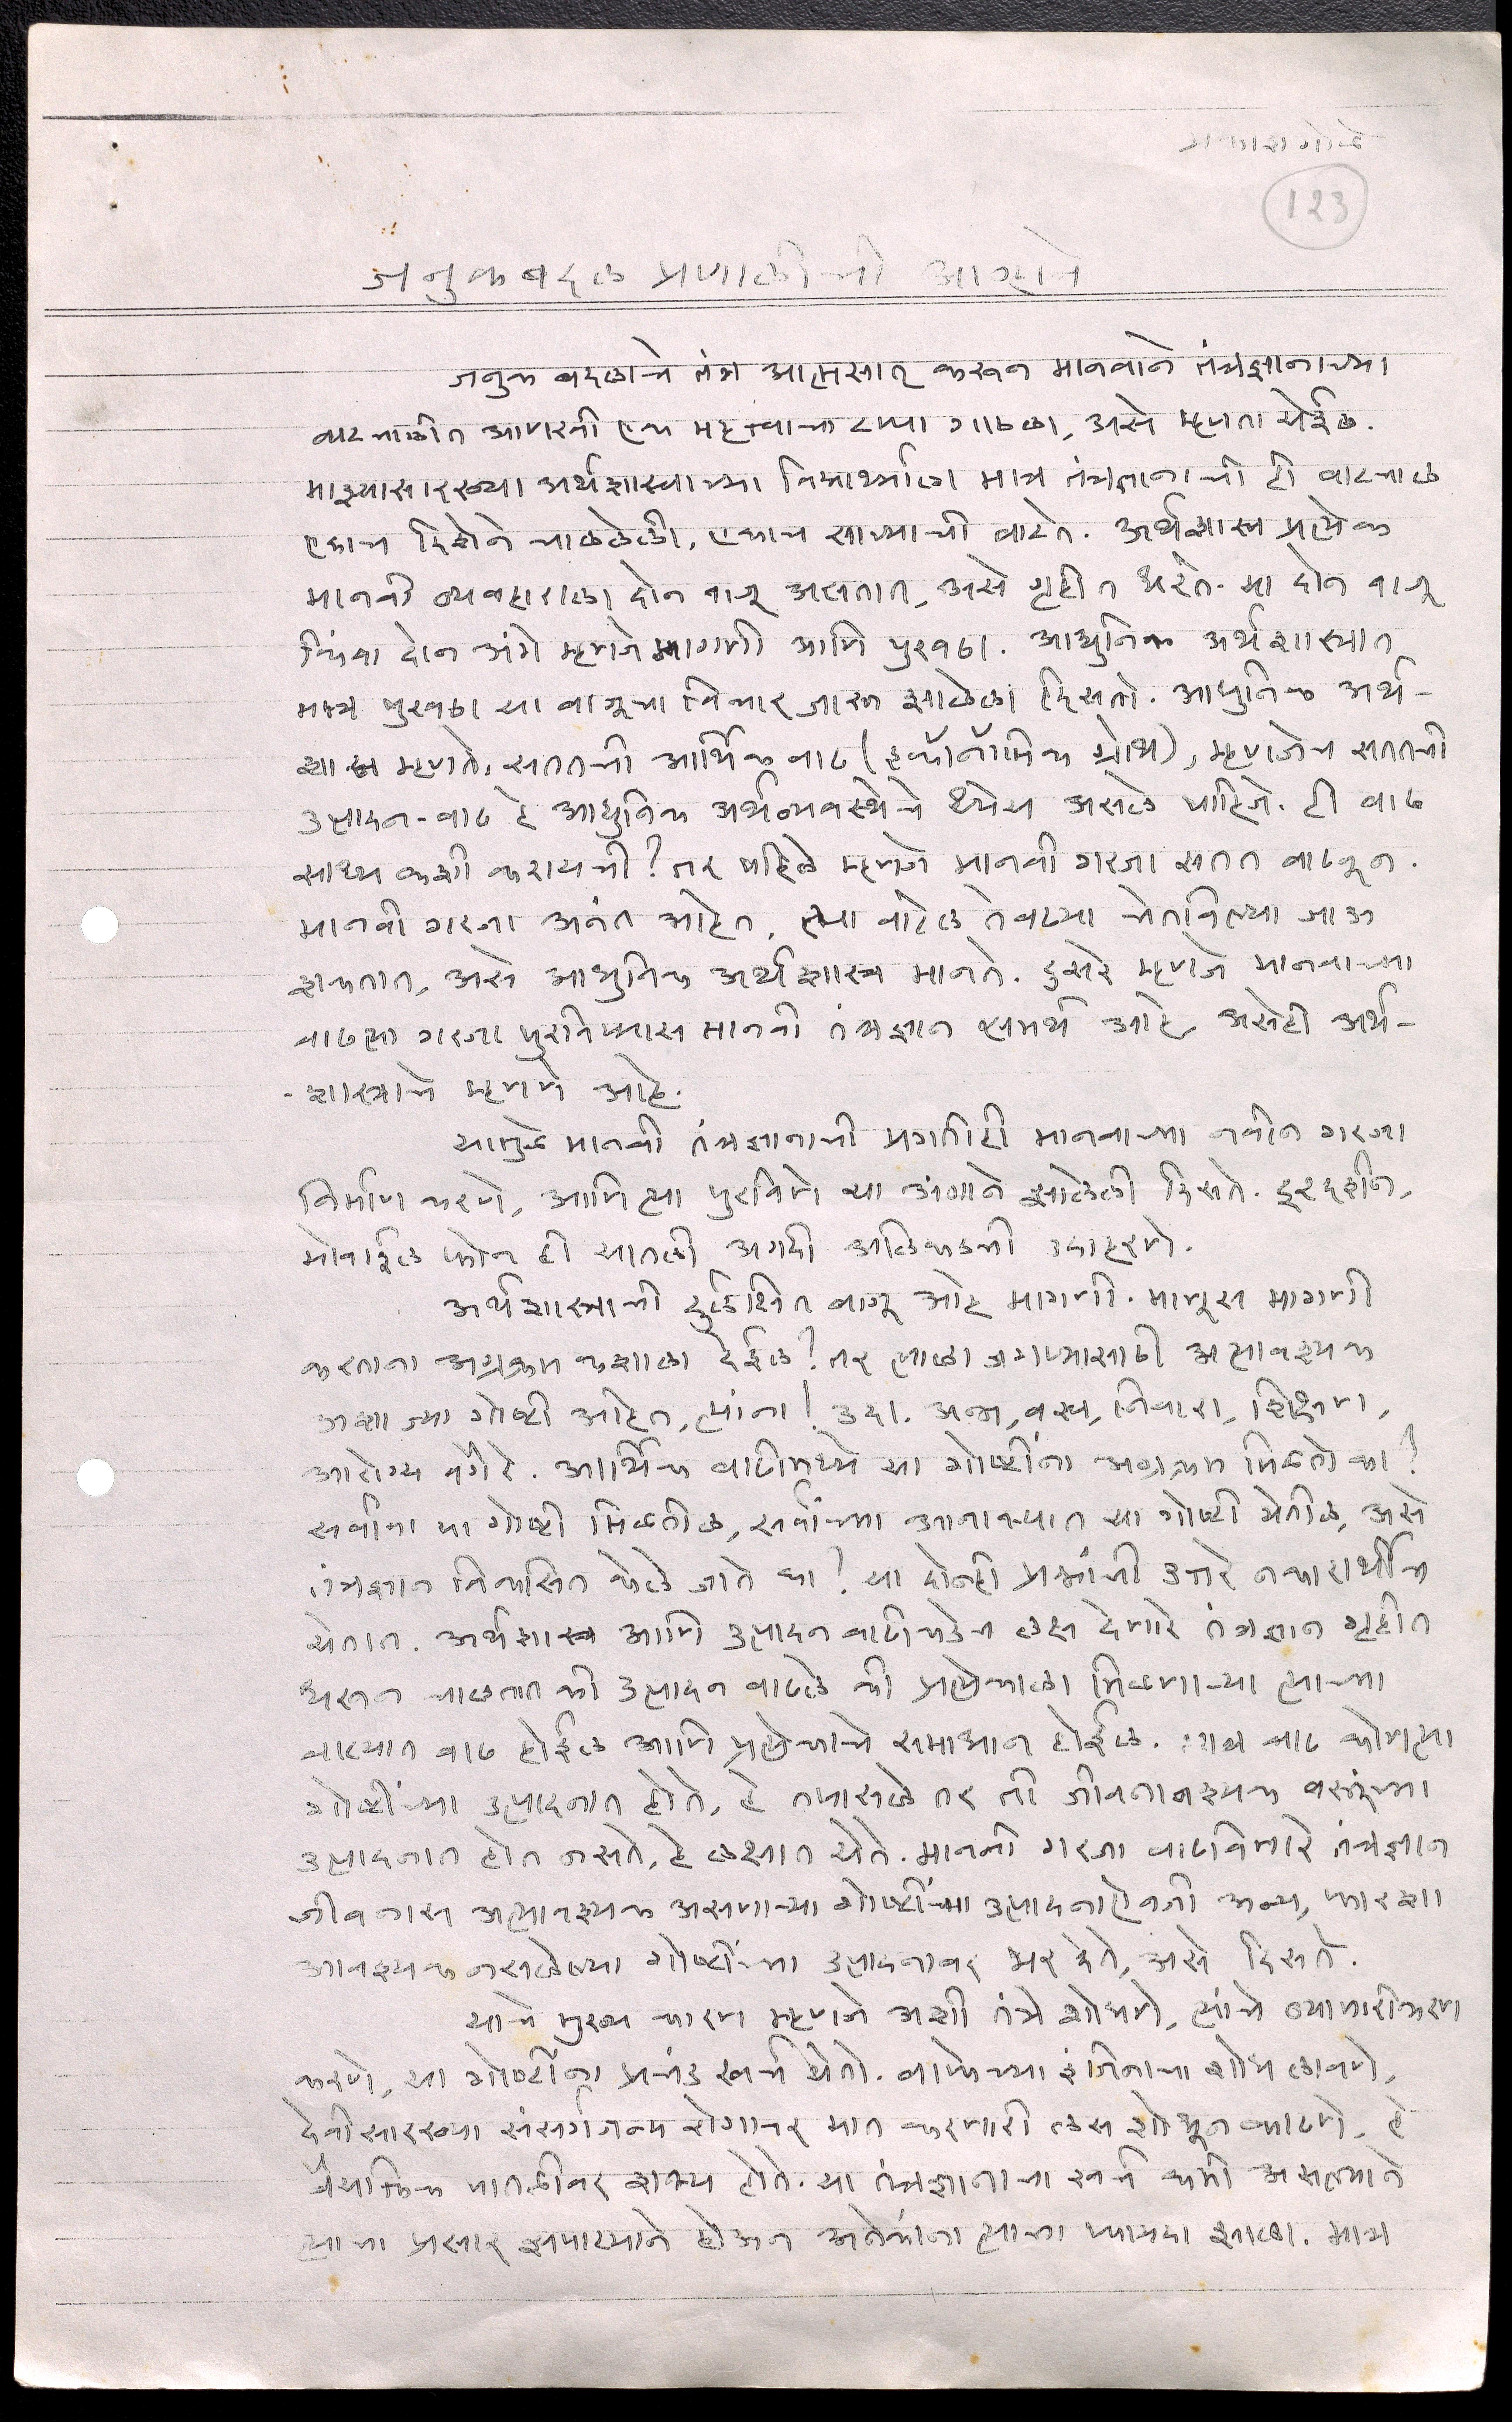 प्रकाश गोळे
123
जनुकबदल प्रणालीची आव्हाने
जनुक बदलाचे तंत्र आत्मसात् करून मानवाने तंत्रज्ञानाच्या
वाटचालीत आणखी एक महत्त्वाचा टप्पा गाठला, असे म्हणता येईल.
माझ्यासारख्या अर्थशास्त्राच्या विद्यार्थ्याला मात्र तंत्रज्ञानाची ही वाटचाल
एकाच दिशेने चाललेली, एकाच साच्याची वाटते. अर्थशास्त्र प्रत्येक
मानवी व्यवहाराला दोन बाजू असतात, असे गृहीत धरते. या दोन बाजू
किंवा दोन अंगे म्हणजे मागणी आणि पुरवठा. आधुनिक अर्थशास्त्रात
मात्र पुरवठा या बाजूचा विचार जास्त झालेला दिसतो. आधुनिक अर्थ-
शास्त्र म्हणते, सततची आर्थिक वाढ (इकॉनॉमिक ग्रोथ), म्हणजेच सततची
उत्पादन-वाढ हे आधुनिक अर्थव्यवस्थेचे ध्येय असले पाहिजे. ही वाढ
साध्य कशी करायची? तर पहिले म्हणजे मानवी गरजा सतत वाढवून.
मानवी गरजा अनंत आहेत, त्या वाटेल तेवढ्या चेतविल्या जाऊ
शकतात, असे आधुनिक अर्थशास्त्र मानते. दुसरे म्हणजे मानवाच्या
वाढत्या गरजा पुरविण्यास मानवी तंत्रज्ञान समर्थ आहे, असेही अर्थ-
-शास्त्राचे म्हणणे आहे.
यामुळे मानवी तंत्रज्ञानाची प्रगतीही मानवाच्या नवीन गरजा
निर्माण करणे, आणि त्या पुरविणे या अंगाने झालेली दिसते. दूरदर्शन,
मोबाईल फोन ही यातली अगदी अलिकडची उदाहरणे.
अर्थशास्त्राची दुर्लक्षित बाजू आहे मागणी. माणूस मागणी
करताना अग्रक्रम कशाला देईल? तर त्याला जगण्यासाठी अत्यावश्यक
अशा ज्या गोष्टी आहेत, त्यांना! उदा. अन्न, वस्त्र, निवारा, शिक्षण,
आरोग्य वगैरे. आर्थिक वाढीमध्ये या गोष्टींना अग्रक्रम मिळतो का?
सर्वांना या गोष्टी मिळतील, सर्वांच्या आवाक्यात या गोष्टी येतील, असे
तंत्रज्ञान विकसित केले जाते का? या दोन्ही प्रश्नांची उत्तरे नकारार्थीच
येतात. अर्थशास्त्र आणि उत्पादन वाढीकडेच लक्ष देणारे तंत्रज्ञान गृहीत
धरून चालतात की उत्पादन वाढले की प्रत्येकाला मिळणाऱ्या त्याच्या
वाट्यात वाढ होईल आणि प्रत्येकाचे समाधान होईल. मात्र वाढ कोणत्या
गोष्टींच्या उत्पादनात होते, हे तपासले तर ती जीवनावश्यक वस्तूंच्या
उत्पादनात होत नसते, हे लक्षात येते. मानवी गरजा वाढविणारे तंत्रज्ञान
जीवनास अत्यावश्यक असणाऱ्या गोष्टींच्या उत्पादनाऐवजी अन्य, फारशा
आवश्यक नसलेल्या गोष्टींच्या उत्पादनावर भर देते, असे दिसते.
याचे मुख्य कारण म्हणजे अशी तंत्रे शोधणे, त्यांचे व्यापारीकरण
करणे, या गोष्टींना प्रचंड खर्च येतो. वाफेच्या इंजिनाचा शोध लावणे,
देवीसारख्या संसर्गजन्य रोगावर मात करणारी लस शोधून काढणे, हे
वैयक्तिक पातळीवर शक्य होते. या तंत्रज्ञानाचा खर्च कमी असल्याने
त्याचा प्रसार झपाट्याने होऊन अनेकांना त्याचा फायदा झाला. मात्र